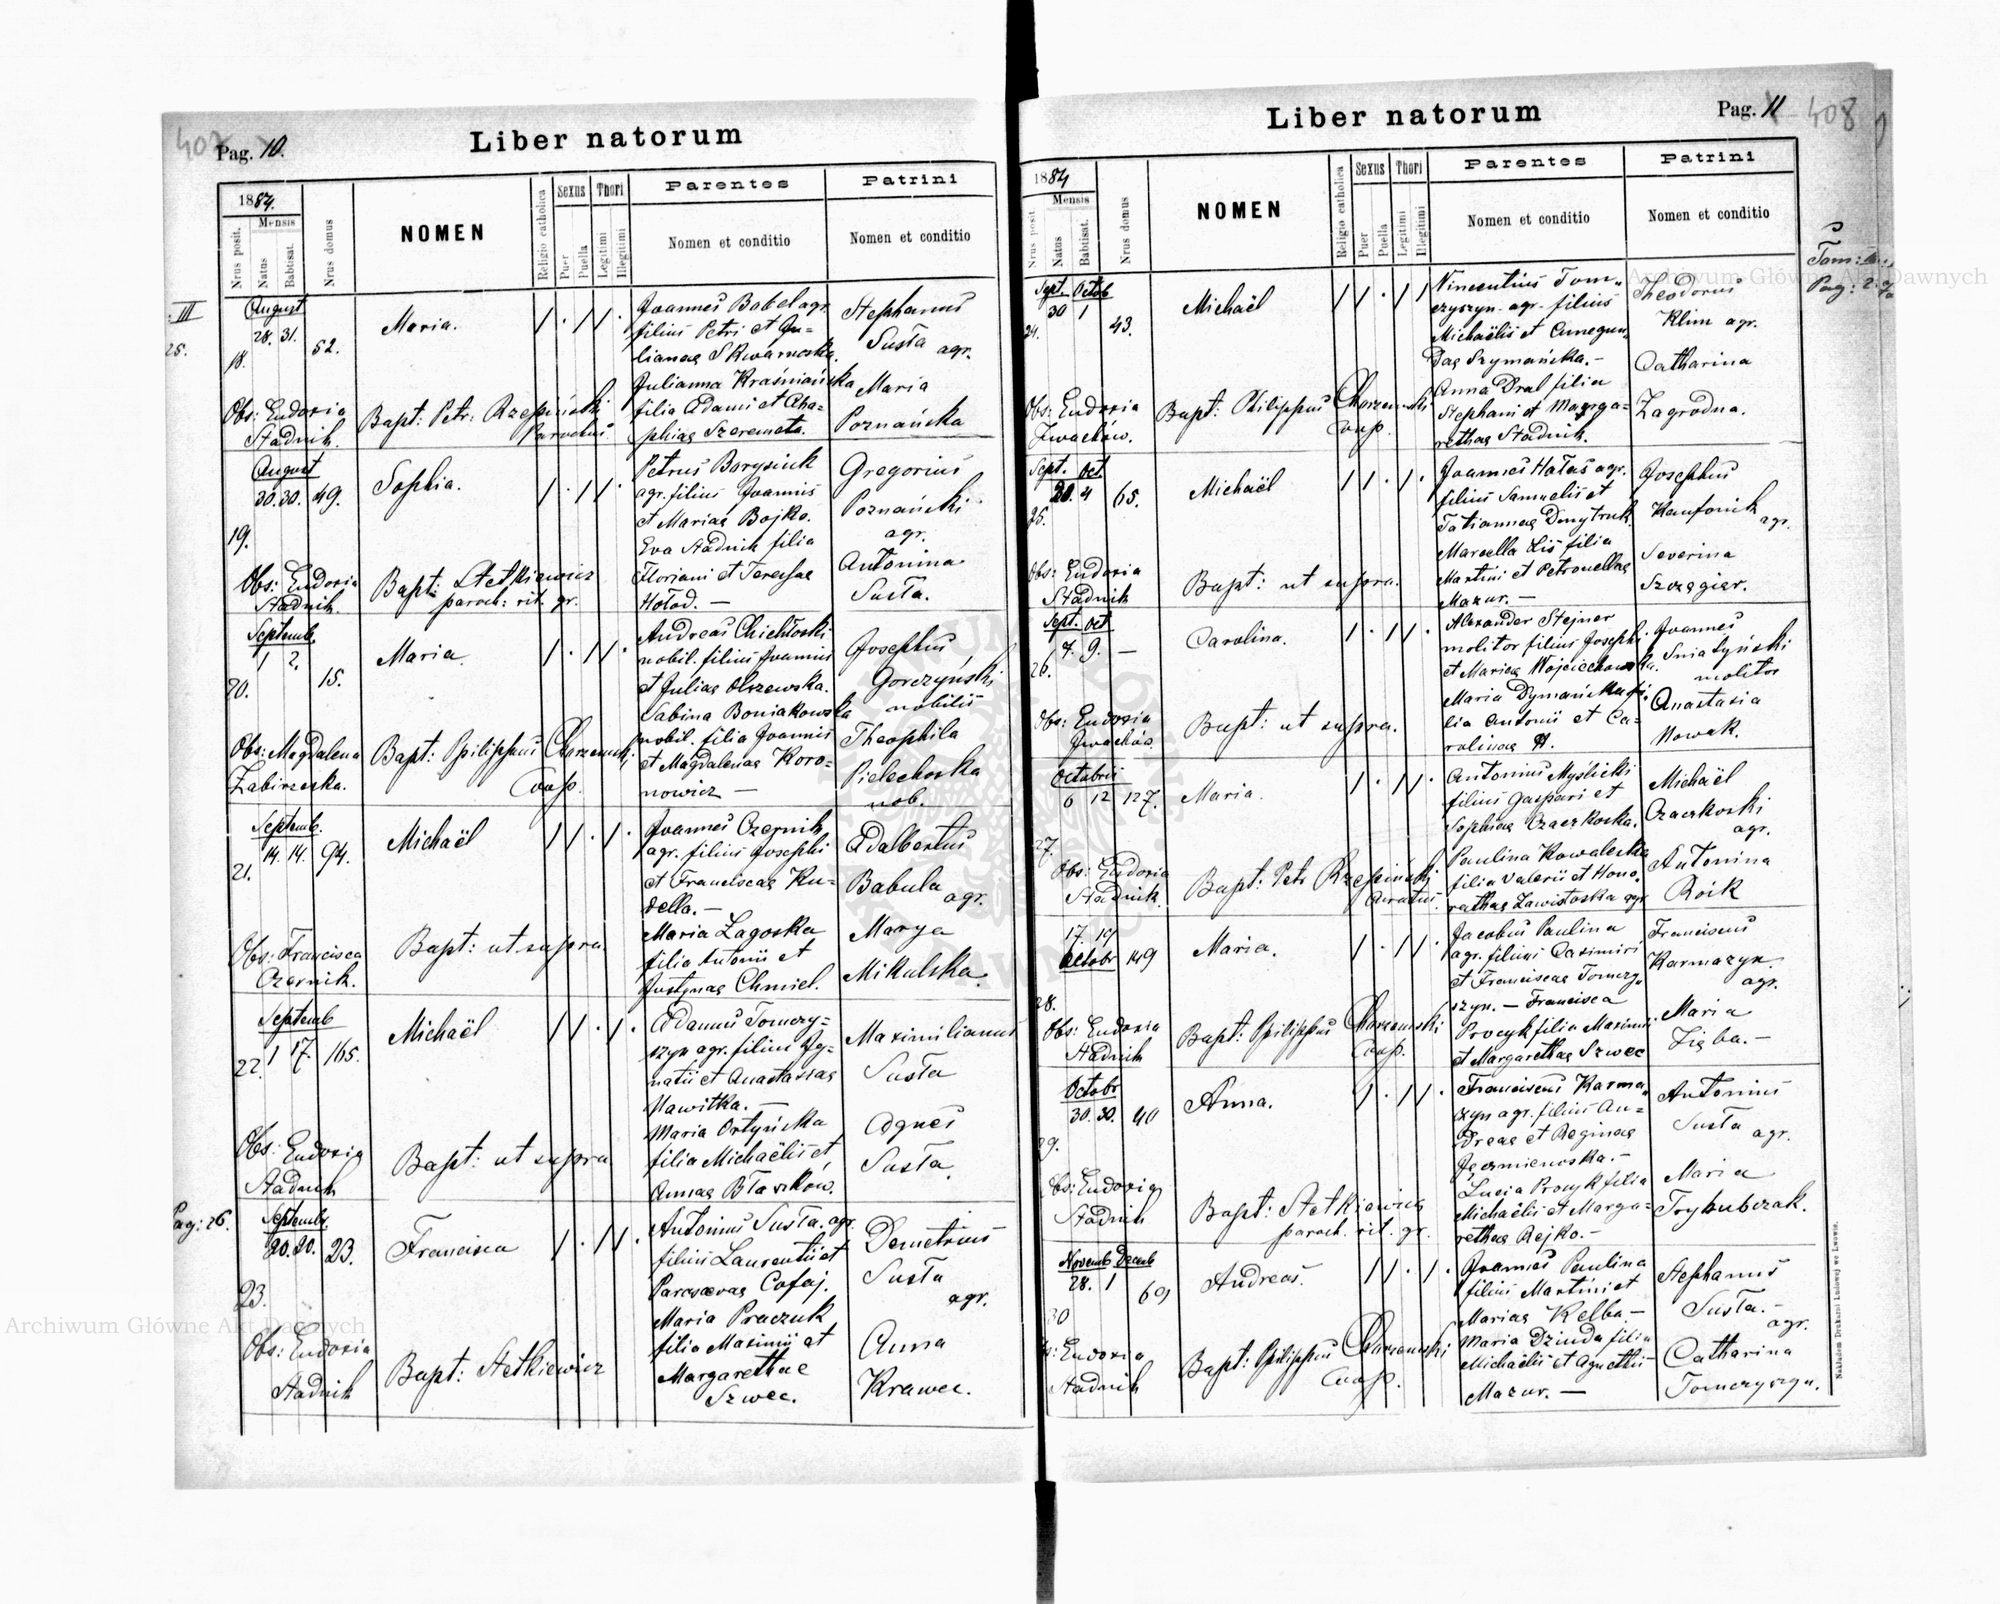 407
Pag. 10.
Liber natorum
1884.
Mensis
Nrus posit.
Natus
Babtisat.
Nrus domus
NOMEN
Religio catholica
Sexus
Puer
Puella
Thori
Legitimi
Illegitimi
Parentes
Nomen et conditio
Patrini
Nomen et conditio
III
25.
August
28. 31.
18.
52.
Maria.
Obs: Eudoxia
Stadnik.
Bapt: Petr: Rzepiński
Parochus
Joannes Bakel agr.
filius Petri et Ju-
lianae Skwarnoska.
Julianna Kraśniańska
filia Adami et Aha-
phiae Szeremeta.
Stephanus
Susta agr.
Maria
Poznańska
August
30. 30. 49.
19.
Sophia.
Obs: Eudoxia
Stadnik.
Bapt: Stetkiewicz
paroch: rit. gr.
Petrus Borysiuk
agr. filius Joannis
et Mariae Bojko.
Eva Stadnik filia
Floriani et Teresae
Hołod. —
Gregorius
Poznański
agr.
Antonina
Susta.
Septemb.
1 2.
20.
15.
Maria
Obs: Magdalena
Zabirzeska.
Bapt: Philippus Chorzemski
Coop.
Andreas Chichłoski
nobil. filius Joannis
et Juliae Olszewska.
Sabina Boniakowska
nobil. filia Joannis
et Magdalenae Koro-
nowicz —
Josephus
Gorczyński
nobilis
Theophila
Pielechoska
nob.
Septemb.
14. 14. 94.
21.
Michaël
Obs: Francisca
Czernik.
Bapt: ut supra.
Joannes Czernik
agr. filius Josephi
et Franciscae Ku-
della. —
Maria Zagoska
filia Antonii et
Justynae Chmiel.
Adalbertus
Babula
agr.
Marya
Mikulska.
Septemb
22. 1 17. 165.
Michaël
Obs: Eudoxia
Stadnik
Bapt: ut supra
Adamus Tomczy-
szyn agr. filius Ig-
natii et Anastasiae
Nawitka. —
Maria Ortyńska
filia Michaëlis et
Annae Błaszków.
Maximilianus
Susta
Agnes
Susta.
Pag: 26.
Septemb.
20. 20. 23.
23.
Francisca
Obs: Eudoxia
Stadnik
Bapt: Stetkiewicz
Antonius Susta. agr.
filius Laurentii et
Parascevae Cofaj.
Maria Praczuk
filia Maximi et
Margarethae
Szwec.
Demetrius
Susta
agr.
Anna
Krawec.
Liber natorum
Pag. 11
408
1884
Mensis
Nrus posit.
Natus
Babtisat.
Nrus domus
NOMEN
Religio catholica
Sexus
Puer
Puella
Thori
Legitimi
Illegitimi
Parentes
Nomen et conditio
Patrini
Nomen et conditio
Sept. Octob
30 1
24.
43.
Michaël
Obs: Eudoxia
Iwachów.
Bapt: Philippus Chorzemski
Coop.
Vincentius Tom-
czyszyn. agr. filius
Michaëlis et Cunegun-
dae Szymańska. —
Anna Dral filia
Stephani et Marga-
rethae Stadnik.
Theodorus
Klim agr.
Catharina
Zagrodna.
Sept. Oct
20. 4 65.
25.
Michaël
Obs: Eudoxia
Stadnik
Bapt: ut supra.
Joannes Hałas agr.
filius Samuelis et
Tatiannae Dmytruk
Marcella Liś filia
Martini et Petronellae
Mazur. —
Josephus
Kanfonik
agr.
Severina
Szczęgier.
Sept. Oct
7. 9. —
26.
Carolina.
Obs: Eudoxia
Iwachów.
Bapt: ut supra.
Alexander Stejner
molitor filius Josephi
et Mariae Wojciechowska.
Maria Dymańska fi-
lia Antonii et Ca-
rolinae N.
Joannes
Śniatyński
molitor
Anastasia
Nowak.
Octobris
6 12 127.
27.
Maria.
Obs: Eudoxia
Stadnik.
Bapt: Petr Rzepiński
Curatus.
Antonius Myślicki
filius Gaspari et
Sophiae Czaczkoska.
Paulina Kowaleska
filia Valerii et Hono-
rathae Zawistoska agr
Michaël
Czaczkoski
agr.
Antonina
Roik
17. 19
Octobr 149
28.
Maria.
Obs: Eudoxia
Stadnik
Bapt: Philippus Chorzemski
Coop.
Jacobus Paulina
agr. filius Casimiri
et Franciscae Tomczy-
szyn. — Francisca
Procyk filia Maximi
et Margarethae Szwec
Franciscus
Karmazyn.
agr.
Maria
Zięba. —
Octobr
30. 30. 40
29.
Anna.
Obs: Eudoxia
Stadnik
Bapt: Stetkiewicz
paroch. rit. gr.
Franciscus Karma-
zyn agr. filius An-
dreae et Reginae
Jęczmienoska. —
Lucia Procyk filia
Michaëlis et Marga-
rethae Rejko. —
Antonius
Susta agr.
Maria
Trybubczak.
Novemb Decemb
28. 1 69
30
Andreas.
Eudoxia
Stadnik
Bapt: Philippus Chorzemski
Coop.
Joannes Paulina
filius Martini et
Mariae Kelba —
Maria Dziuda filia
Michaëlis et Agnethis
Mazur. —
Stephanus
Susta. —
agr.
Catharina
Tomczyszyn.
Nakładem Drukarni Ludowej we Lwowie.
Archiwum Główne Akt Dawnych
Archiwum Główne Akt Dawnych